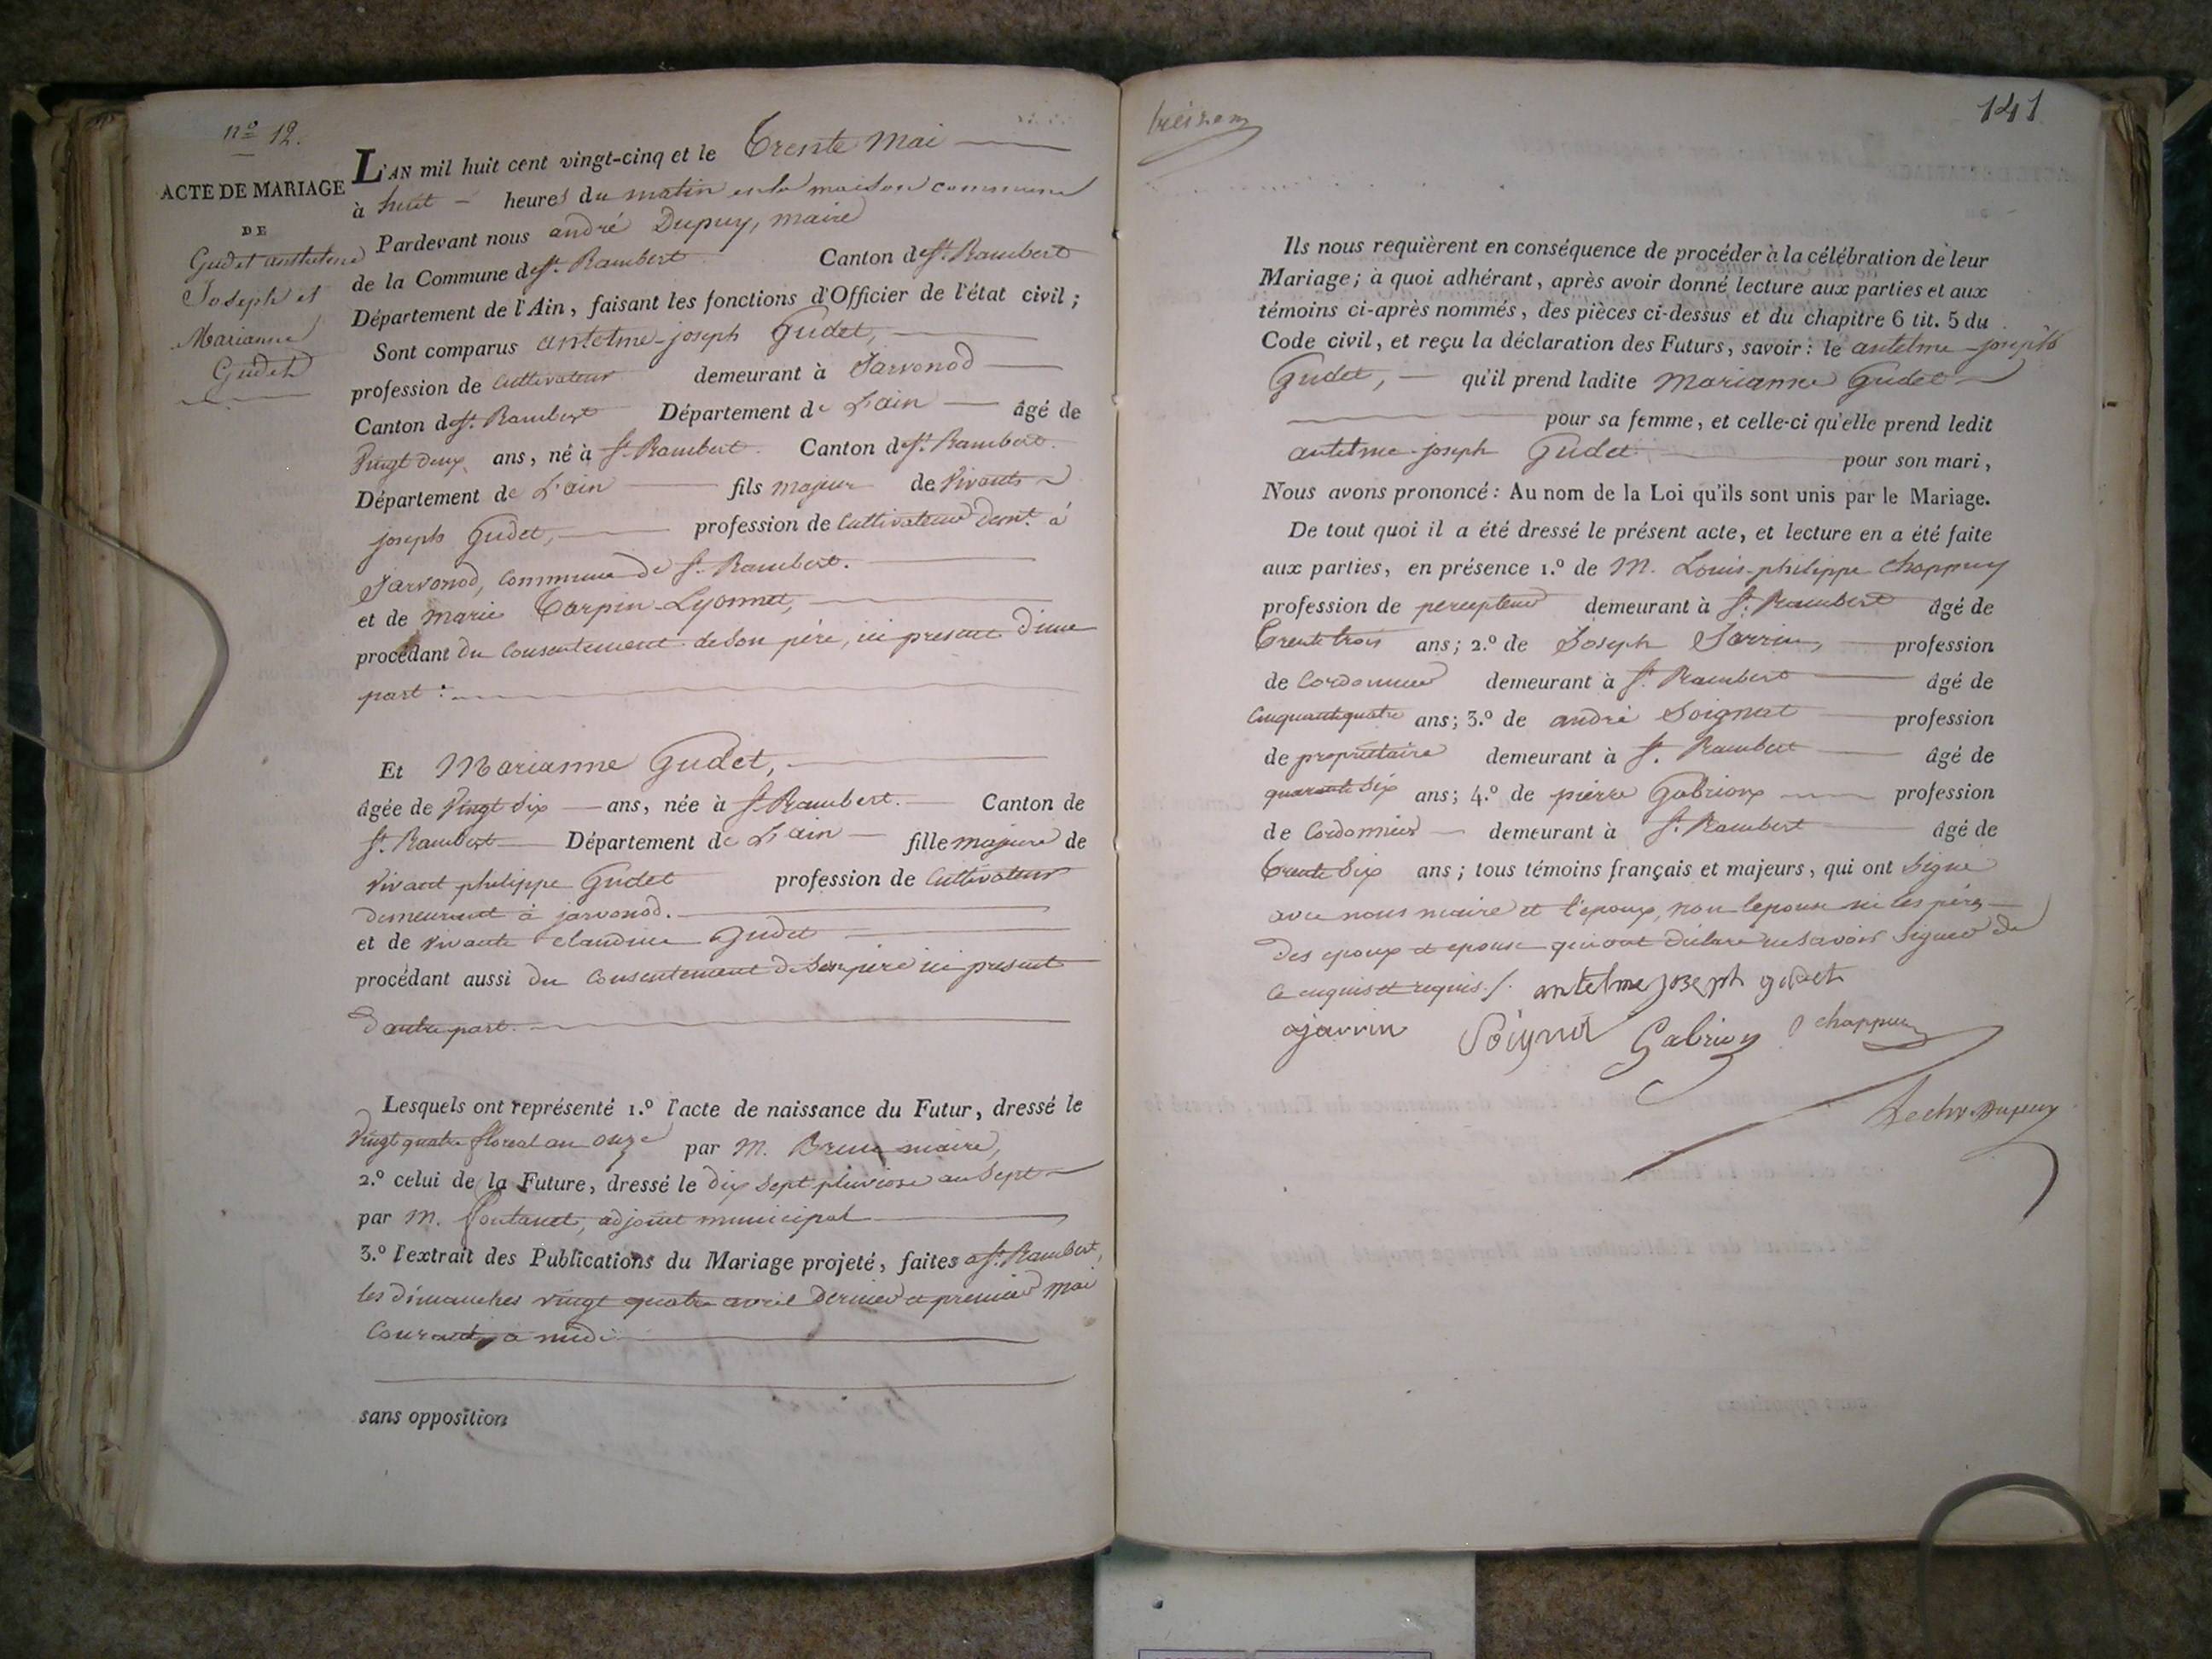 nº 12.
ACTE DE MARIAGE
DE
Gudet anthelme
Joseph et
Marianne
Gudet
L'AN mil huit cent vingt-cinq et le Trente Mai
à huit heures du matin en la maison commune
Pardevant nous andré Dupuy, maire
de la Commune de St. Rambert Canton de St. Rambert
Département de l'Ain, faisant les fonctions d'Officier de l'état civil;
Sont comparus antelme-joseph Gudet,
profession de Cultivateur demeurant à Jarvonod
Canton de St. Rambert Département de L'ain âgé de
Vingt deux ans, né à St. Rambert Canton de St. Rambert.
Département de L'ain fils majeur de vivants
joseph Gudet, profession de Cultivateur demt. à
Jarvonod, commune de St. Rambert.
et de marie Carpin-Lyonnet,
procédant du Consentement de son père, ici présent d'une
part :
Et Marianne Gudet,
âgée de Vingt Six ans, née à St. Rambert. Canton de
St. Rambert Département de L'ain fille majeure de
vivant philippe Gudet profession de Cultivateur
demeurant à jarvonod.
et de vivante Claudine Gudet
procédant aussi du Consentement de Son père ici présent
d'autre part.
Lesquels ont représenté 1.º l'acte de naissance du Futur, dressé le
Vingt quatre floreal an onze par M. Brun maire,
2.º celui de la Future, dressé le dix sept pluviose an Sept
par M. fontanet, adjoint municipal
3.º l'extrait des Publications du Mariage projeté, faites à St. Rambert,
les dimanches vingt quatre avril dernier et premier mai
Courant, à midi
sans opposition
141
Ils nous requièrent en conséquence de procéder à la célébration de leur
Mariage; à quoi adhérant, après avoir donné lecture aux parties et aux
témoins ci-après nommés, des pièces ci-dessus et du chapitre 6 tit. 5 du
Code civil, et reçu la déclaration des Futurs, savoir: le antelme-joseph
Gudet, qu'il prend ladite Marianne Gudet
pour sa femme, et celle-ci qu'elle prend ledit
antelme-joseph Gudet pour son mari,
Nous avons prononcé: Au nom de la Loi qu'ils sont unis par le Mariage.
De tout quoi il a été dressé le présent acte, et lecture en a été faite
aux parties, en présence 1.º de M. Louis-philippe Chappuy
profession de percepteur demeurant à St. Rambert âgé de
Trente trois ans; 2.º de Joseph Jarrin, profession
de Cordonnier demeurant à St. Rambert âgé de
Cinquante quatre ans; 3.º de andré Soignat profession
de propriétaire demeurant à St. Rambert âgé de
quarante Six ans; 4.º de pierre Gabrion profession
de Cordonnier demeurant à St. Rambert âgé de
Trente Six ans; tous témoins français et majeurs, qui ont Signé
avec nous maire et l'epoux, non lepouse ni les pères
des epoux et epouse qui ont déclaré ne Savoir Signer de
ce enquis et requis ./. antelme joseph gudet
jarrin Soignat Gabrion chappuy
Dupuy